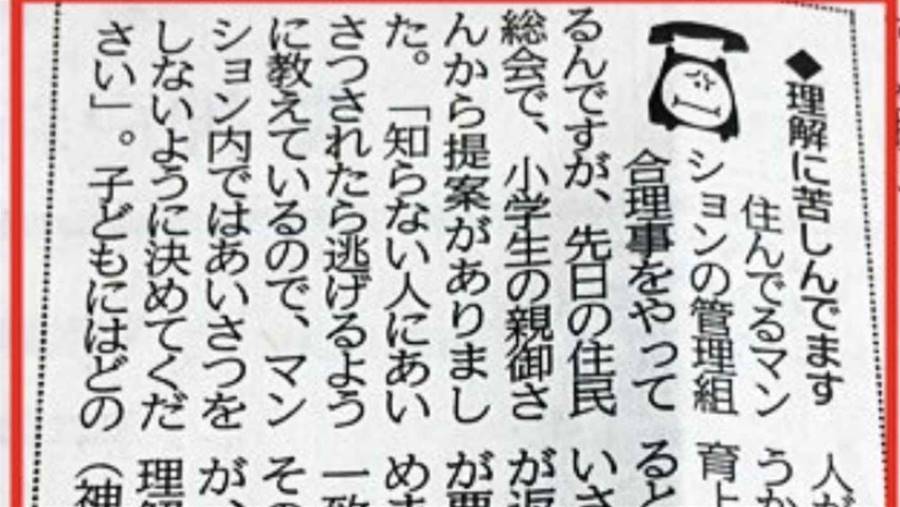 ◆理解に苦しんでます
住んでるマン
ションの管理組
合理事をやって
るんですが、先日の住民
総会で、小学生の親御さ
んから提案がありまし
た。「知らない人にあい
さつされたら逃げるよう
に教えているので、マン
ション内ではあいさつを
しないように決めてくだ
さい」。子どもにはどの
人が
うか
育上
ると
いさ
が返
が要
めま
一致
その
が、
理解
（神